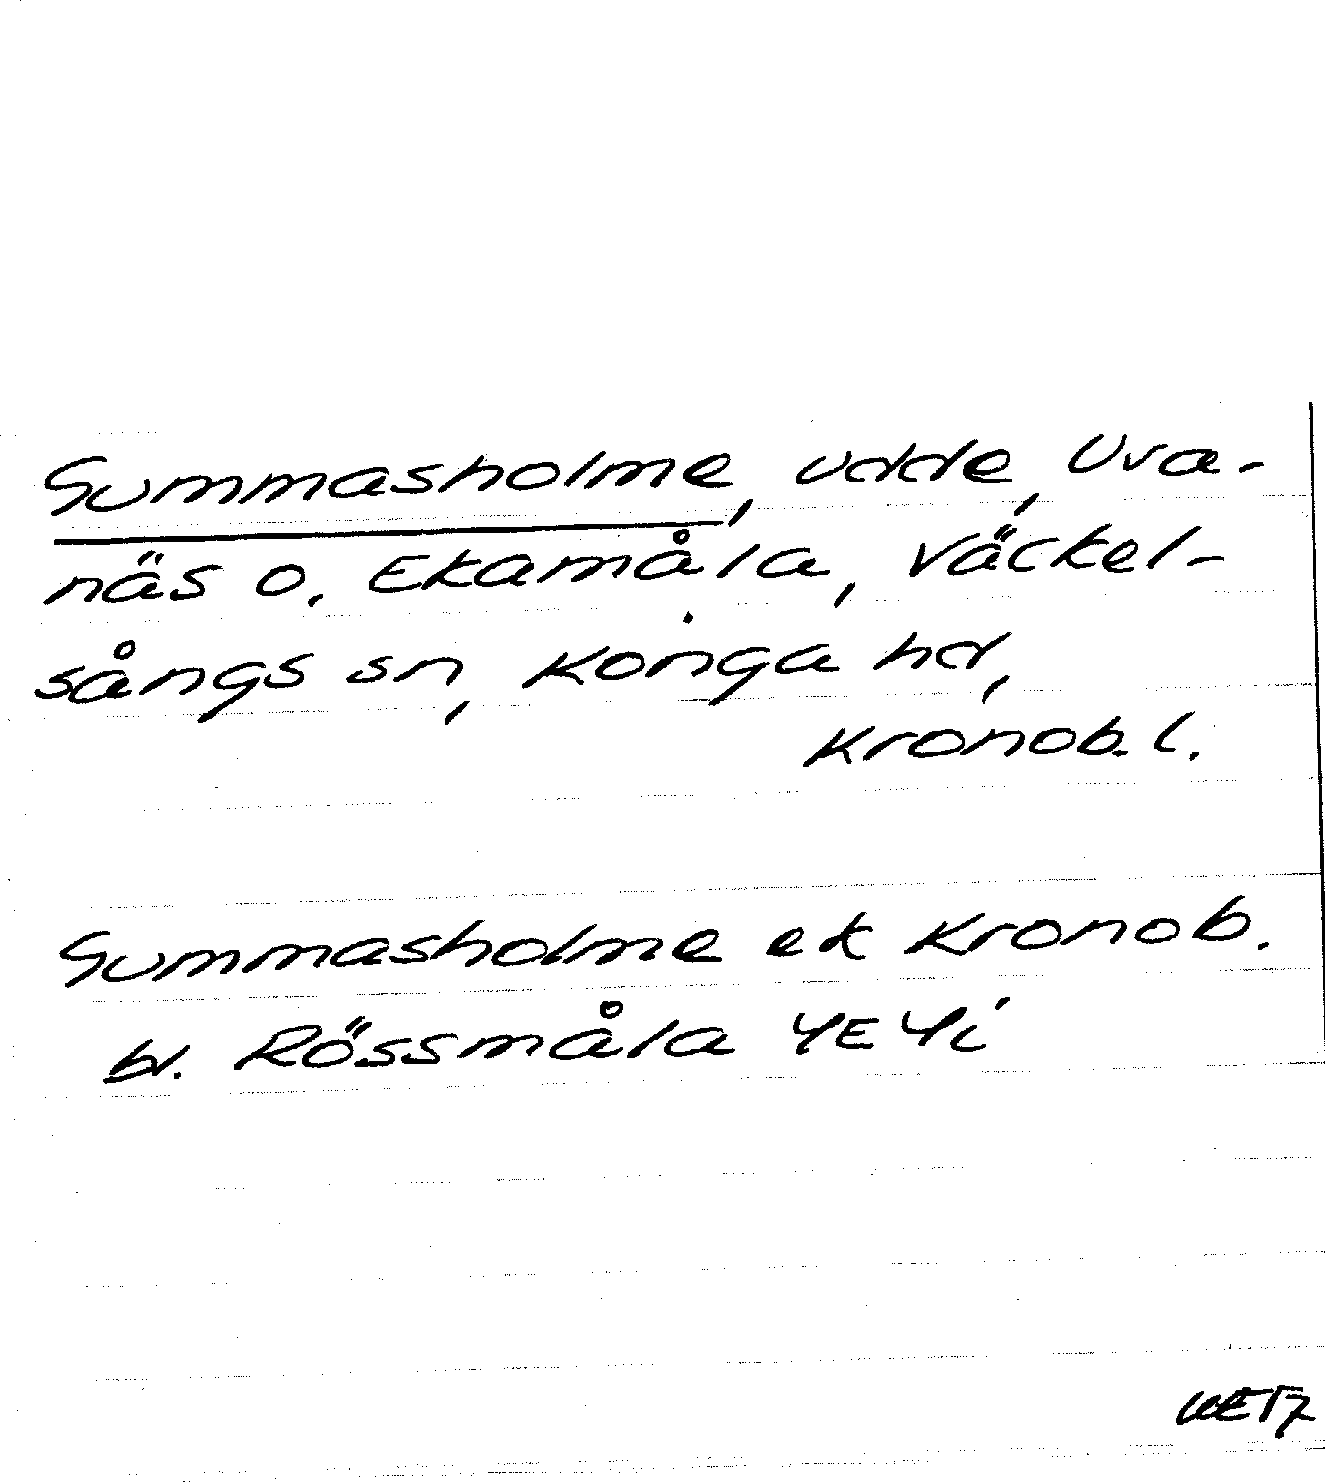 Summasholme, udde, Uva-
näs o. Ekamåla, Väckel-
sångs sn, Konga hd,
Kronob. l.
Summasholme ek Kronob.
bl. Rössmåla 4E4i